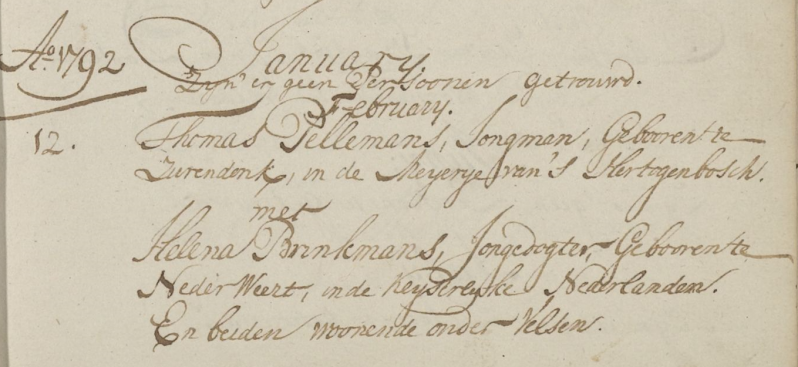 Ao 1792 January.
Zijn er geen Persoonen getrouwd.
February.
12. Thomas Pellemans, Jongman, Gebooren te
Zurendonk, in de Meyerye van 's Hertogenbosch.
met
Helena Brinkmans, Jongedogter, Gebooren te
Neder Weert, in de Keyserlyke Nederlanden.
En beiden woonende onder Velsen.